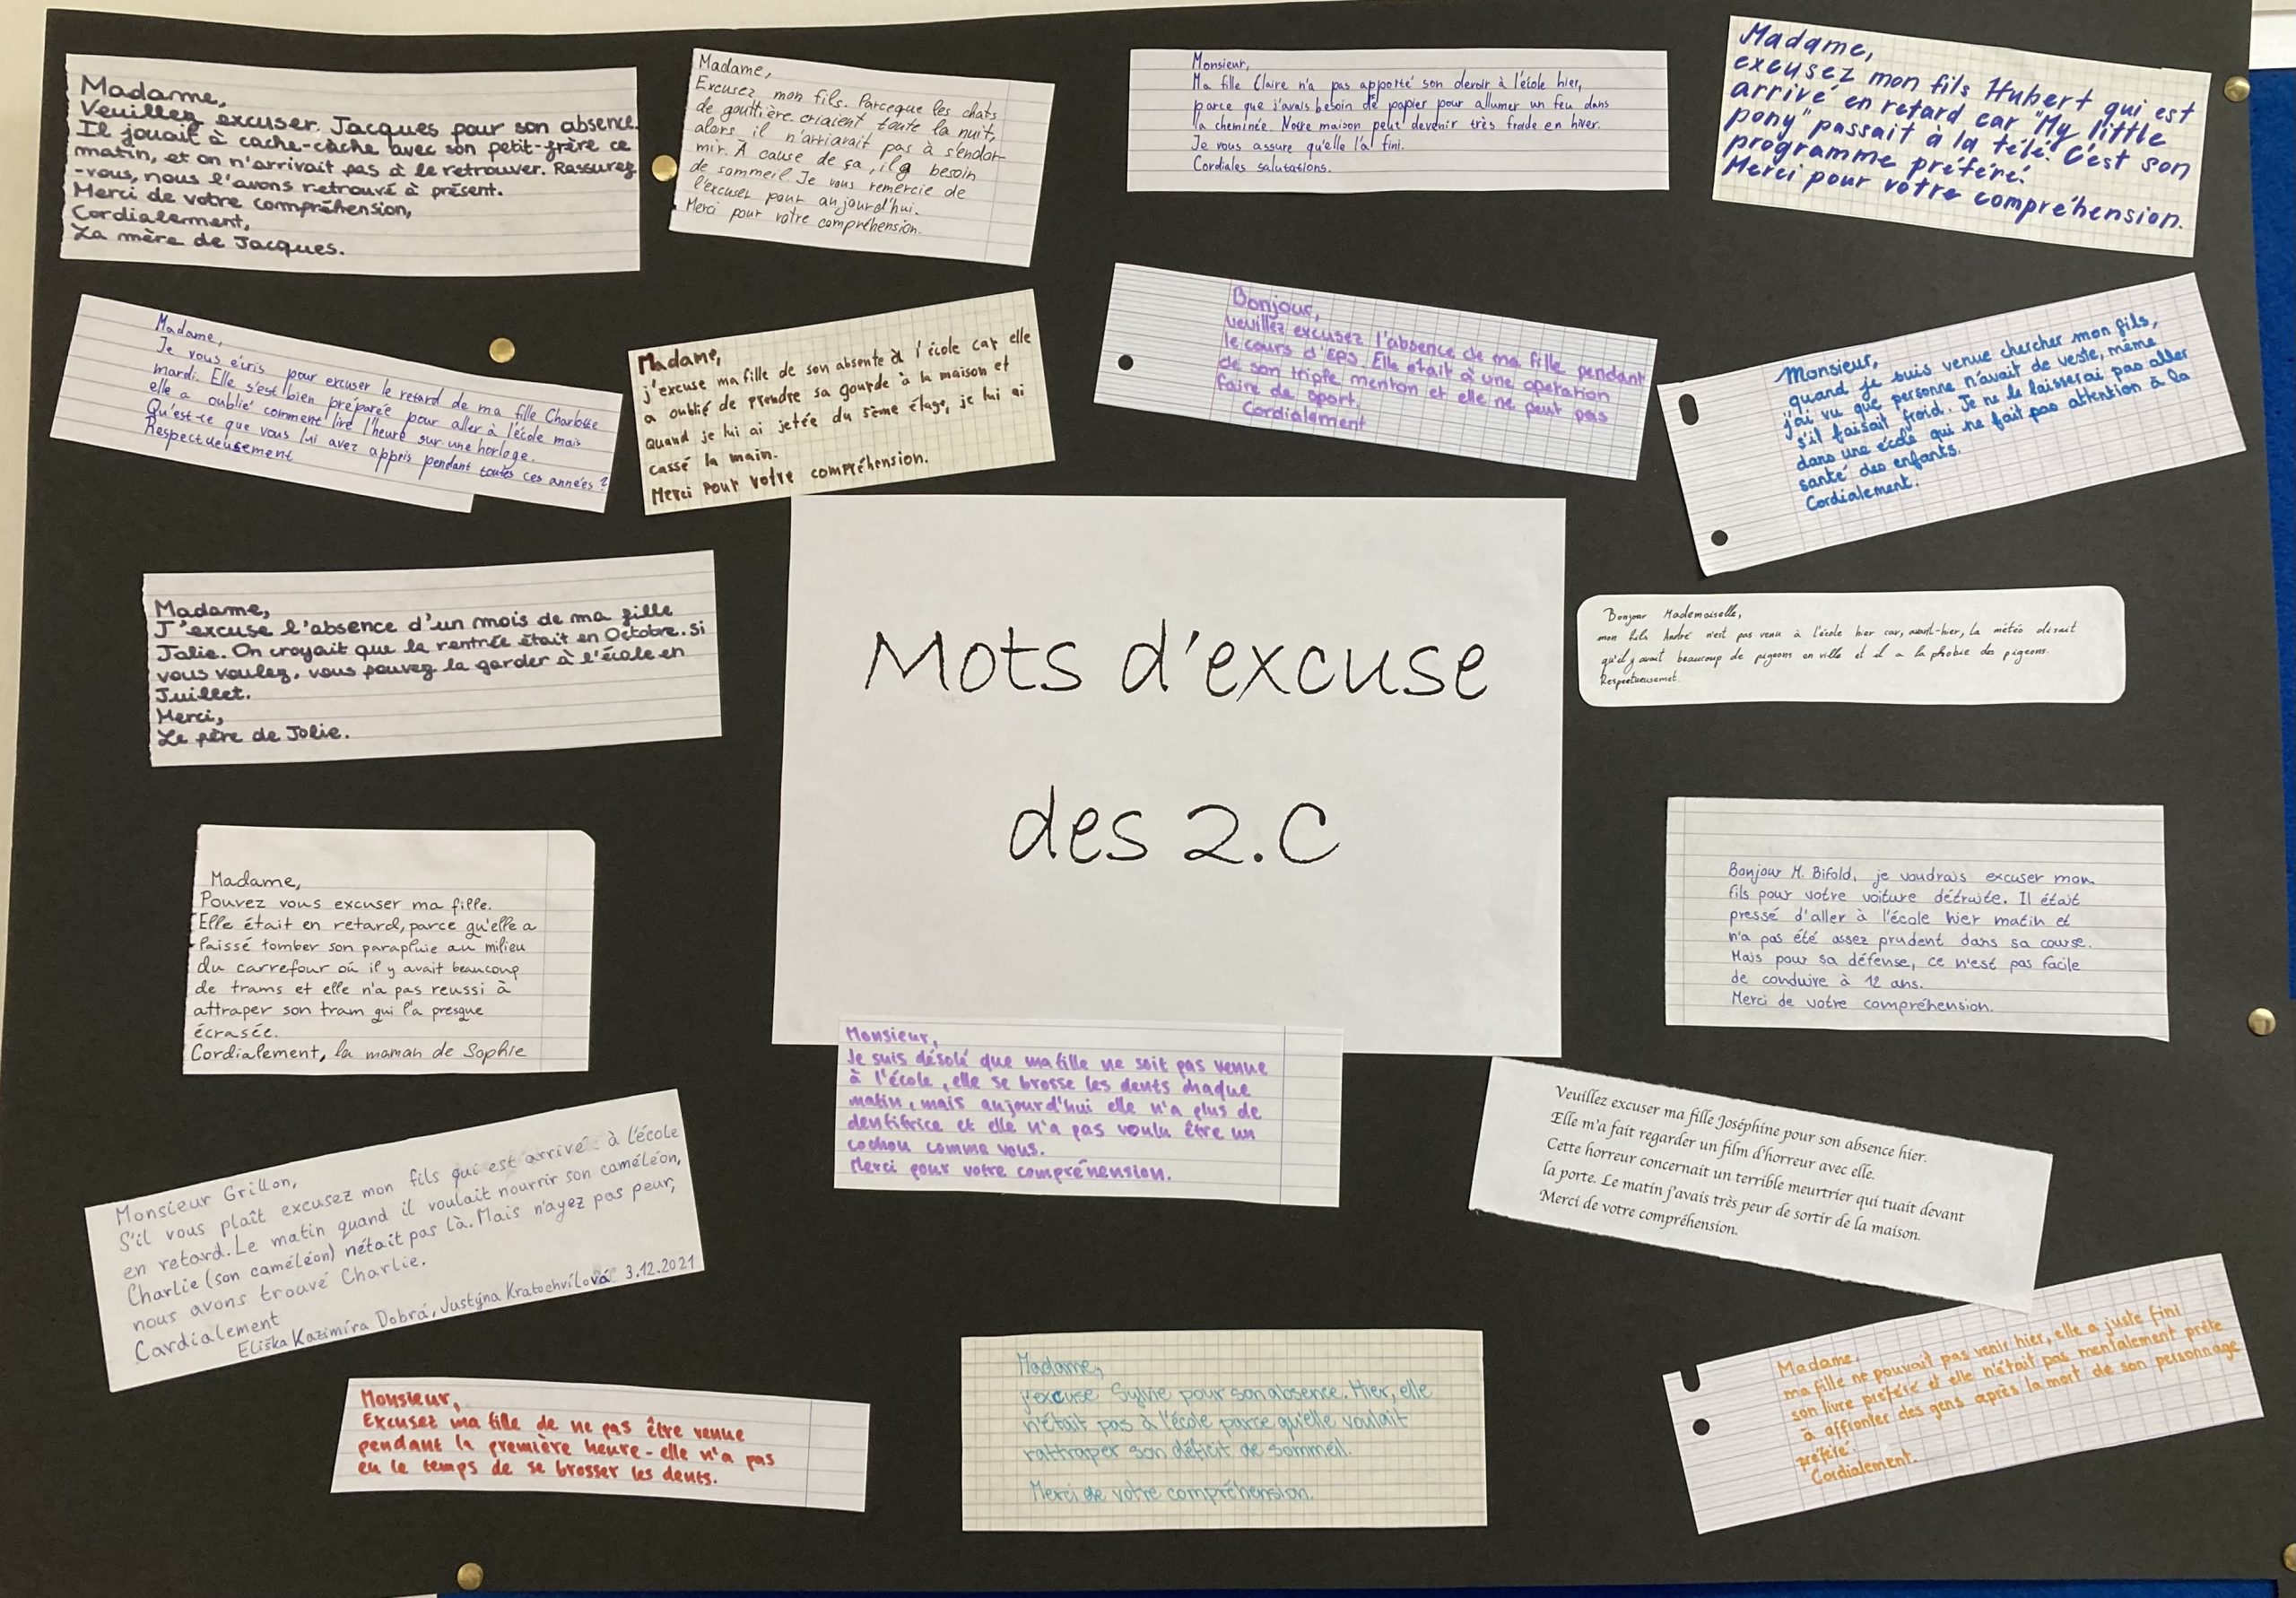 Madame,
Veuillez excuser Jacques pour son absence.
Il jouait à cache-cache avec son petit-frère ce
matin, et on n'arrivait pas à le retrouver. Rassurez
-vous, nous l'avons retrouvé à présent.
Merci de votre compréhension,
Cordialement,
La mère de Jacques.
Madame,
Excusez mon fils. Parceque les chats
de gouttière criaient toute la nuit,
alors il n'arriavait pas à s'endor-
mir. À cause de ça, il a besoin
de sommeil. Je vous remercie de
l'excuser pour aujourd'hui.
Merci pour votre compréhension.
Monsieur,
Ma fille Claire n'a pas apporté son devoir à l'école hier,
parce que j'avais besoin de papier pour allumer un feu dans
la cheminée. Notre maison peut devenir très froide en hiver.
Je vous assure qu'elle l'a fini.
Cordiales salutations.
Madame,
excusez mon fils Hubert qui est
arrivé en retard car "My little
pony" passait à la télé. C'est son
programme préféré.
Merci pour votre compréhension.
Madame,
Je vous écris pour excuser le retard de ma fille Charlotte
mardi. Elle s'est bien préparée pour aller à l'école mais
elle a oublié comment lire l'heure sur une horloge.
Qu'est-ce que vous lui avez appris pendant toutes ces années ?
Respectueusement
Madame,
j'excuse ma fille de son absente à l'école car elle
a oublié de prendre sa gourde à la maison et
Quand je lui ai jetée du 5ème étage, je lui ai
cassé la main.
Merci pour votre compréhension.
Bonjour,
veuillez excusez l'absence de ma fille pendant
le cours d'EPS. Elle était à une operation
de son triple menton et elle ne peut pas
faire de sport.
Cordialement
Monsieur,
quand je suis venue chercher mon fils,
j'ai vu que personne n'avait de veste, même
s'il faisait froid. Je ne le laisserai pas aller
dans une école qui ne fait pas attention à la
santé des enfants.
Cordialement.
Madame,
J'excuse l'absence d'un mois de ma fille
Jolie. On croyait que la rentrée était en Octobre. Si
vous voulez, vous pouvez la garder à l'école en
Juillet.
Merci,
Le père de Jolie.
Mots d'excuse
des 2.C
Bonjour Mademoiselle,
mon fils André n'est pas venu à l'école hier car, avant-hier, la météo disait
qu'il y avait beaucoup de pigeons en ville et il a la phobie des pigeons.
Respectueusemet.
Madame,
Pouvez vous excuser ma fille.
Elle était en retard, parce qu'elle a
laissé tomber son parapluie au milieu
du carrefour où il y avait beaucoup
de trams et elle n'a pas reussi à
attraper son tram qui l'a presque
écrasée.
Cordialement, la maman de Sophie
Bonjour M. Bifold, je voudrais excuser mon
fils pour votre voiture détruite. Il était
pressé d'aller à l'école hier matin et
n'a pas été assez prudent dans sa course.
Mais pour sa défense, ce n'est pas facile
de conduire à 12 ans.
Merci de votre compréhension.
Monsieur,
Je suis désolé que ma fille ne soit pas venue
à l'école, elle se brosse les dents chaque
matin, mais aujourd'hui elle n'a plus de
dentifrice et elle n'a pas voulu être un
cochon comme vous.
Merci pour votre compréhension.
Veuillez excuser ma fille Joséphine pour son absence hier.
Elle m'a fait regarder un film d'horreur avec elle.
Cette horreur concernait un terrible meurtrier qui tuait devant
la porte. Le matin j'avais très peur de sortir de la maison.
Merci de votre compréhension.
Monsieur Grillon,
S'il vous plaît excusez mon fils qui est arrivé à l'école
en retard. Le matin quand il voulait nourrir son caméléon,
Charlie (son caméléon) n'était pas là. Mais n'ayez pas peur,
nous avons trouvé Charlie.
Cardialement
Eliška Kazimíra Dobrá, Justýna Kratochvílová 3.12.2021
Monsieur,
Excusez ma fille de ne pas être venue
pendant la première heure - elle n'a pas
eu le temps de se brosser les dents.
Madame,
j'excuse Sylvie pour son absence. Hier, elle
n'était pas à l'école parce qu'elle voulait
rattraper son déficit de sommeil.
Merci de votre compréhension.
Madame,
ma fille ne pouvait pas venir hier, elle a juste fini
son livre préféré et elle n'était pas mentalement prête
à affronter des gens après la mort de son personnage
préféré.
Cordialement.